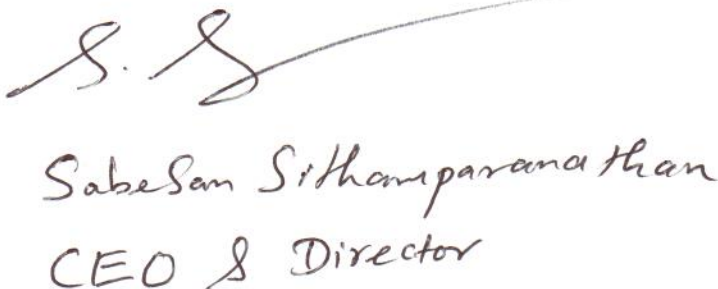 S. S
SabeSan Sithamparanathan
CEO & Director